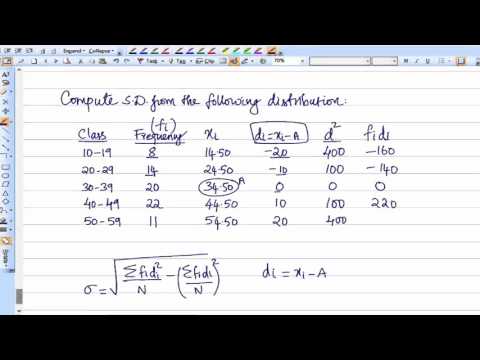 Expand Collapse
70%
Compute S.D. from the following distribution:
(fi)
Class Frequency xi di=xi-A d² fidi
10-19 8 14.50 -20 400 -160
20-29 14 24.50 -10 100 -140
30-39 20 34.50 A 0 0 0
40-49 22 44.50 10 100 220
50-59 11 54.50 20 400
σ = √Σfidi²/N - (Σfidi/N)² di = xi-A